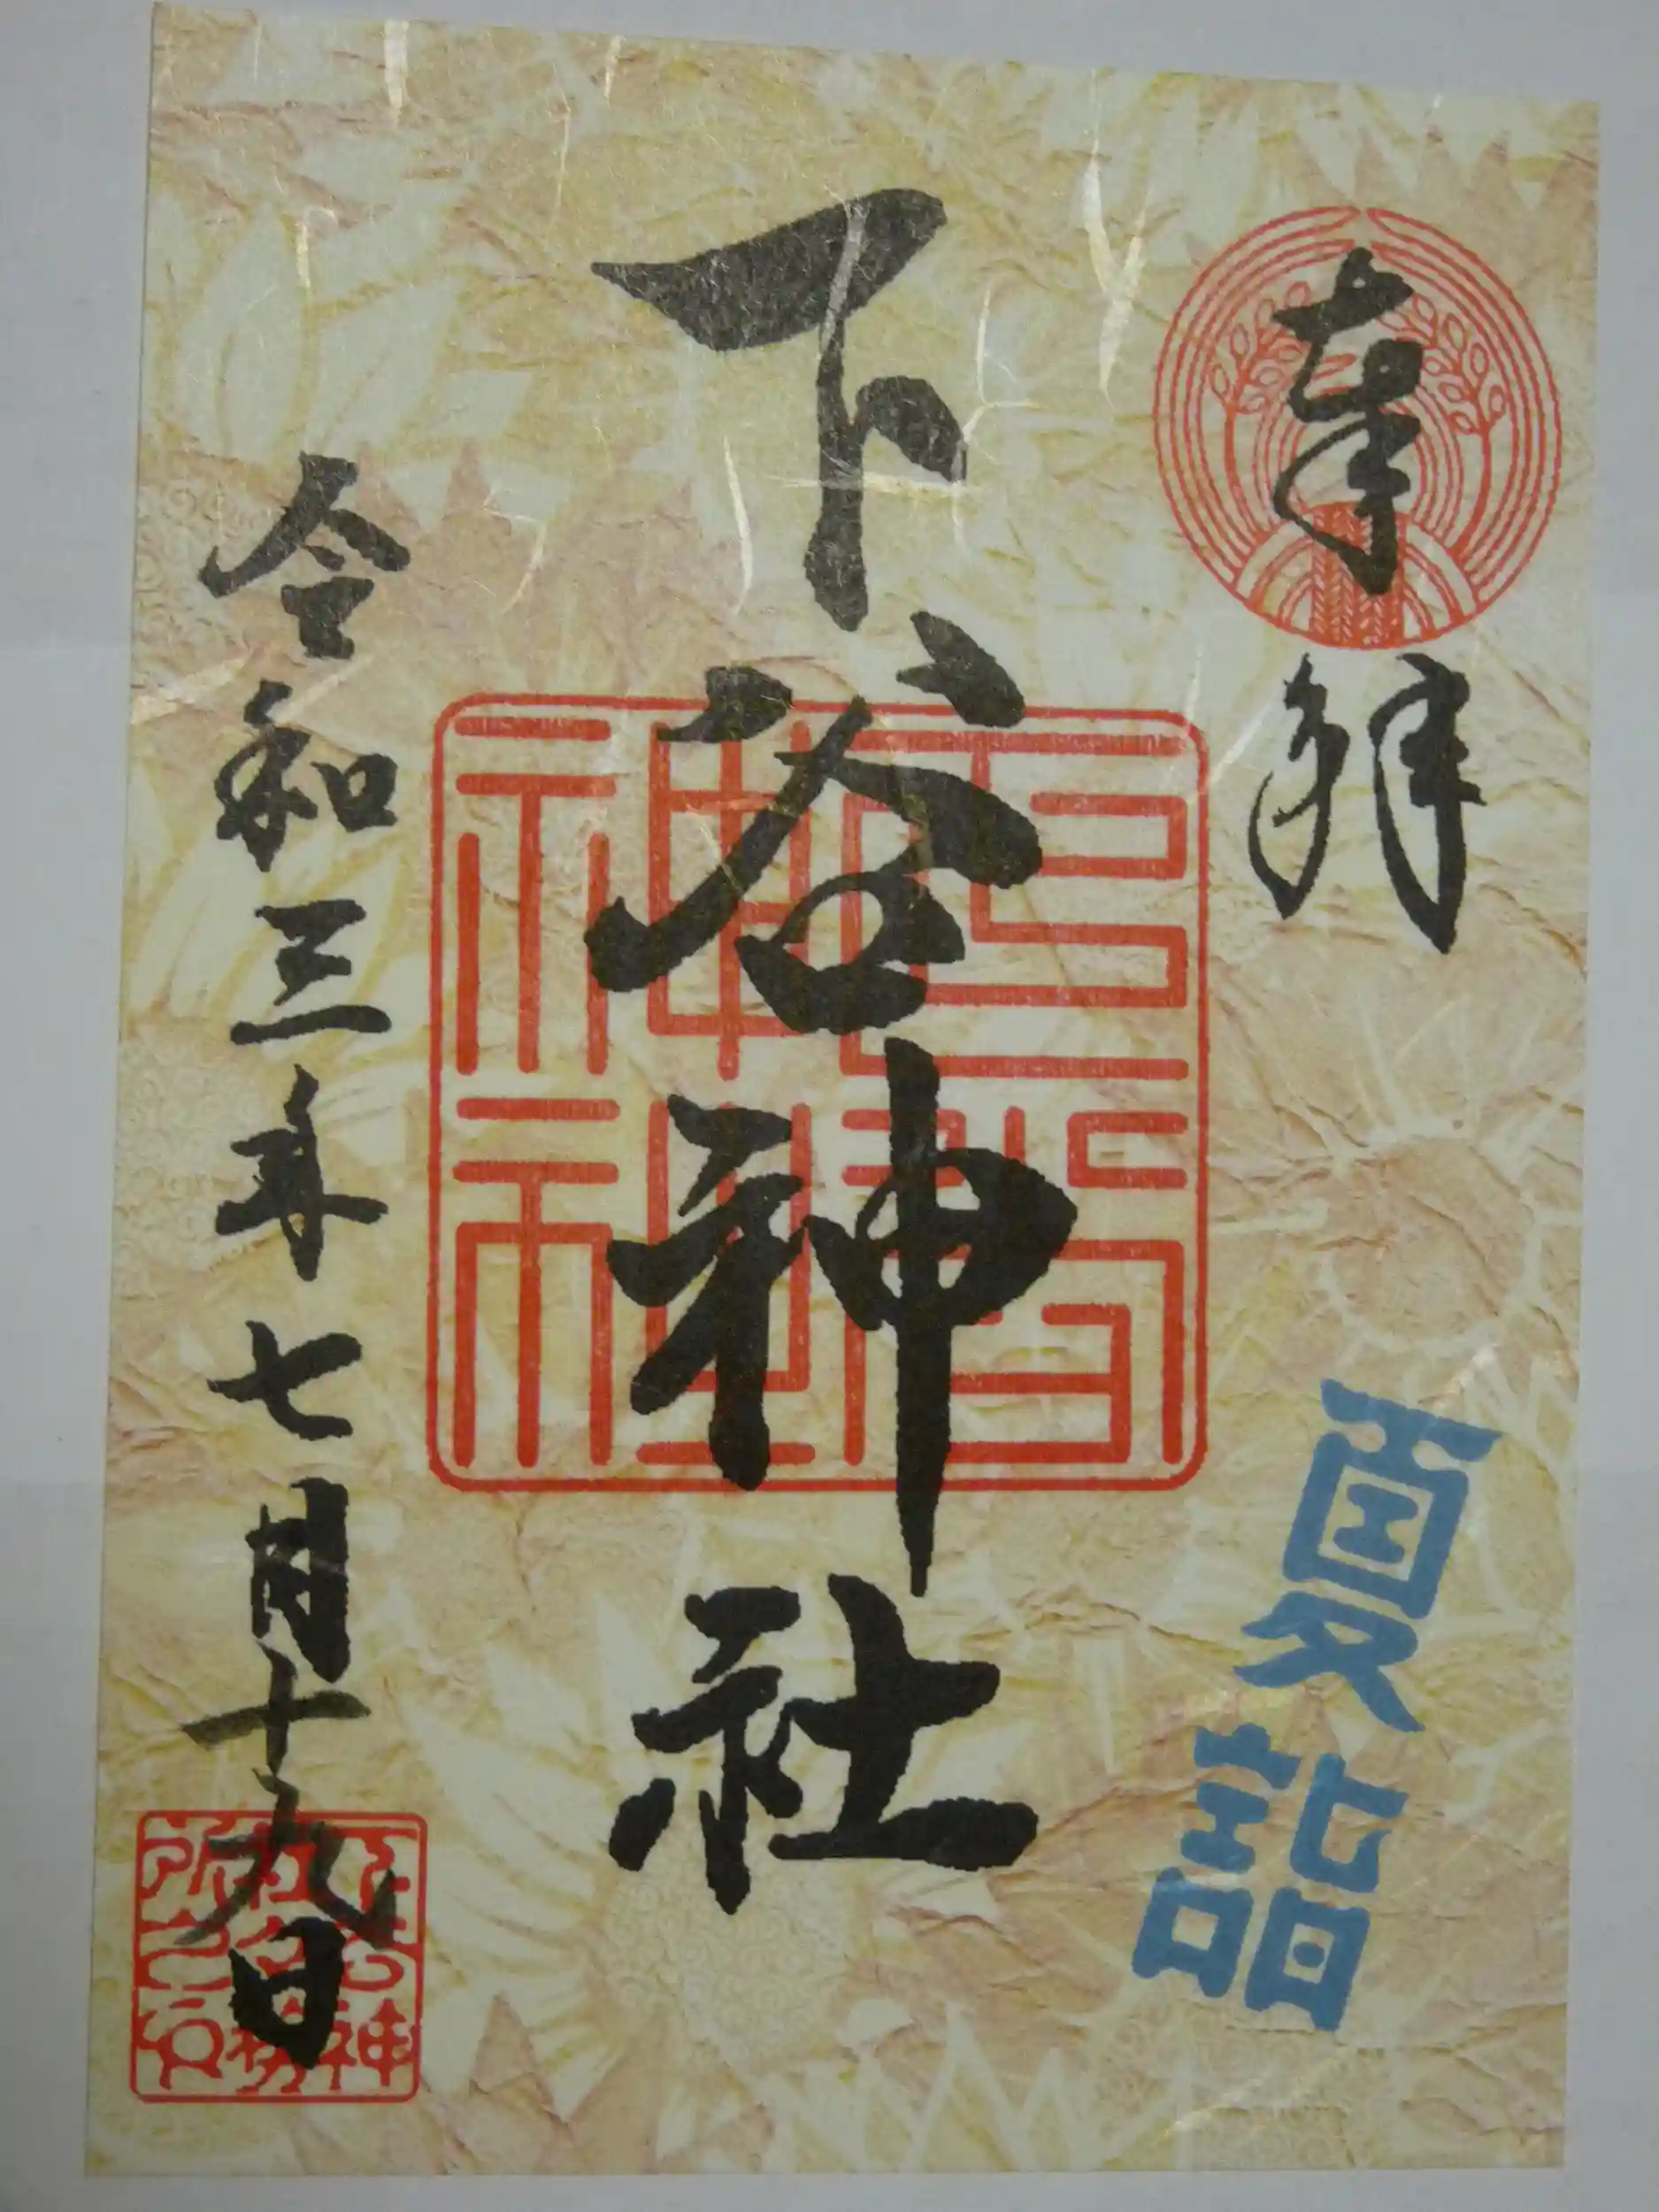 奉拝
夏詣
下谷神社
令和三年七月十九日